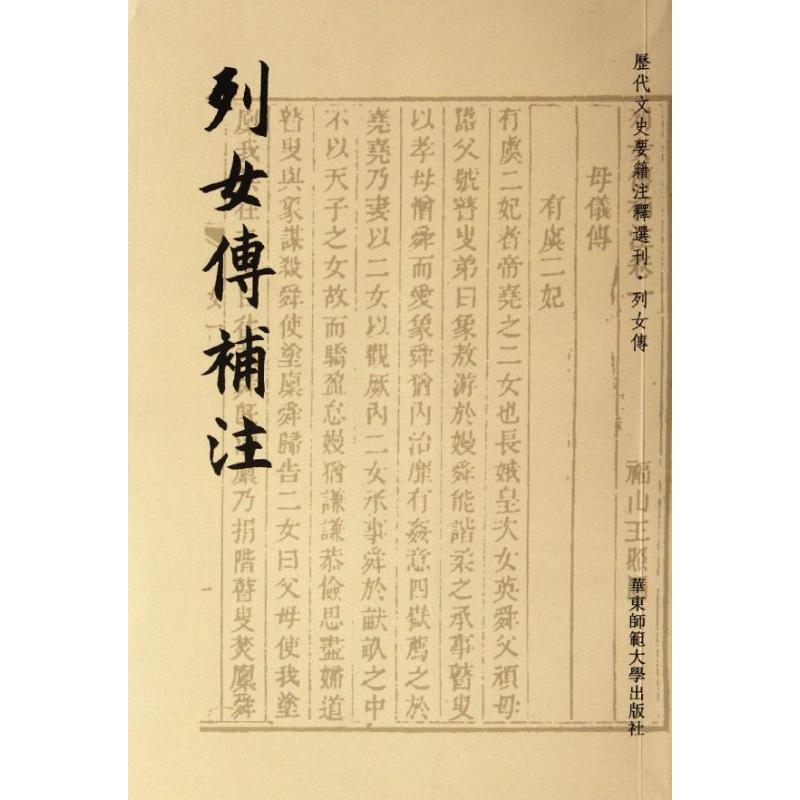 列女傳補注
歷代文史要籍注釋選刊·列女傳
華東師範大學出版社
福山王照
母儀傳
有虞二妃
有虞二妃者帝堯之二女也長娥皇次女英舜父頑母
嚚父號瞽叟弟曰象敖游於嫚舜能諧柔之承事瞽叟
以孝母憎舜而愛象舜猶內治靡有姦意四嶽薦之於
堯堯乃妻以二女以觀厥內二女承事舜於畎畝之中
不以天子之女故而驕盈怠嫚猶謙謙恭儉思盡婦道
瞽叟與象謀殺舜使塗廩舜歸告二女曰父母使我塗
廩我
廩乃捐階瞽叟焚廩舜